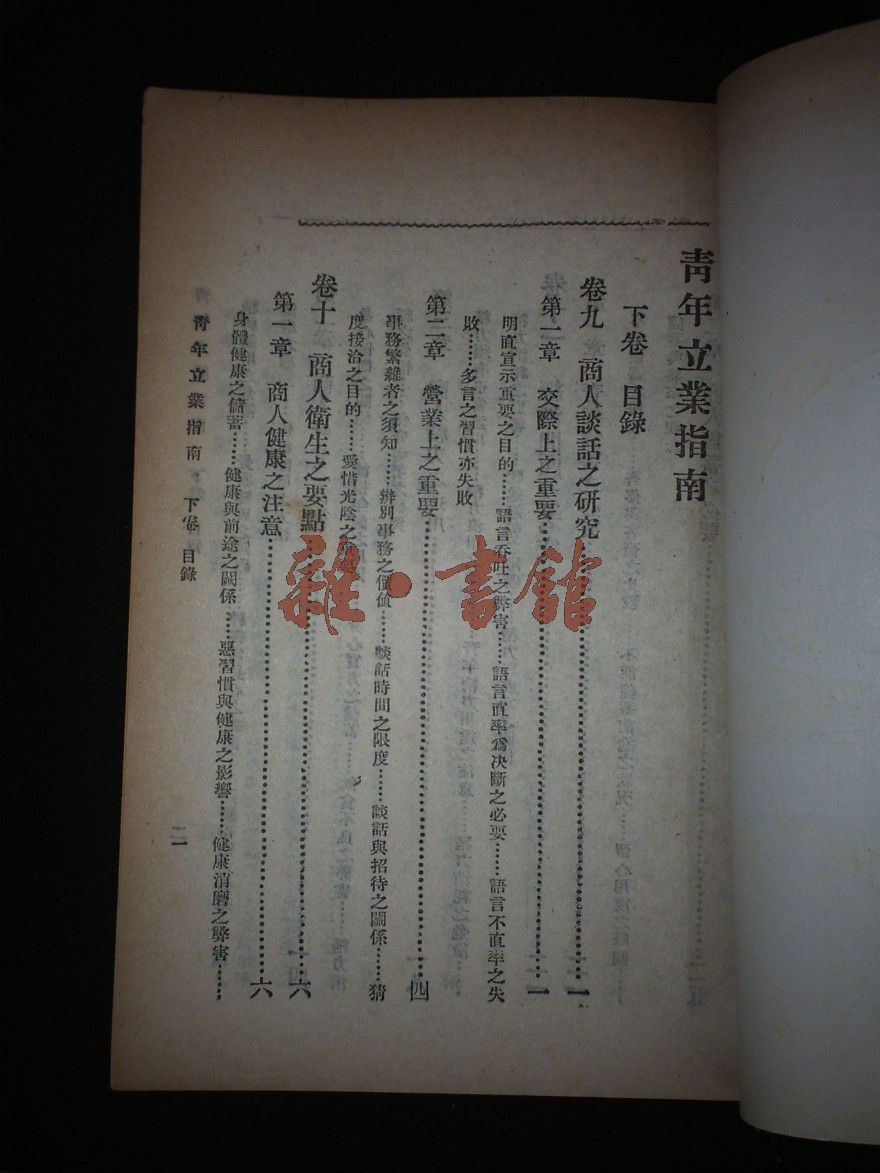 靑年立業指南
下卷 目錄
卷九 商人談話之研究……一
第一章 交際上之重要……一
明直宣示重要之目的……語言吞吐之弊害……語言直率爲決斷之必要……語言不直率之失
敗……多言之習慣亦失敗
第二章 營業上之重要……四
事務繁雜者之須知……辨別事務之價値……談話時間之限度……談話與招待之關係……猜
度接洽之目的……愛惜光陰之
卷十 商人衛生之要點……六
第一章 商人健康之注意……六
身體健康之儲蓄……健康與前途之關係……惡習慣與健康之影響……健康消磨之弊害……
靑年立業指南 下卷 目錄
一
雜·書館